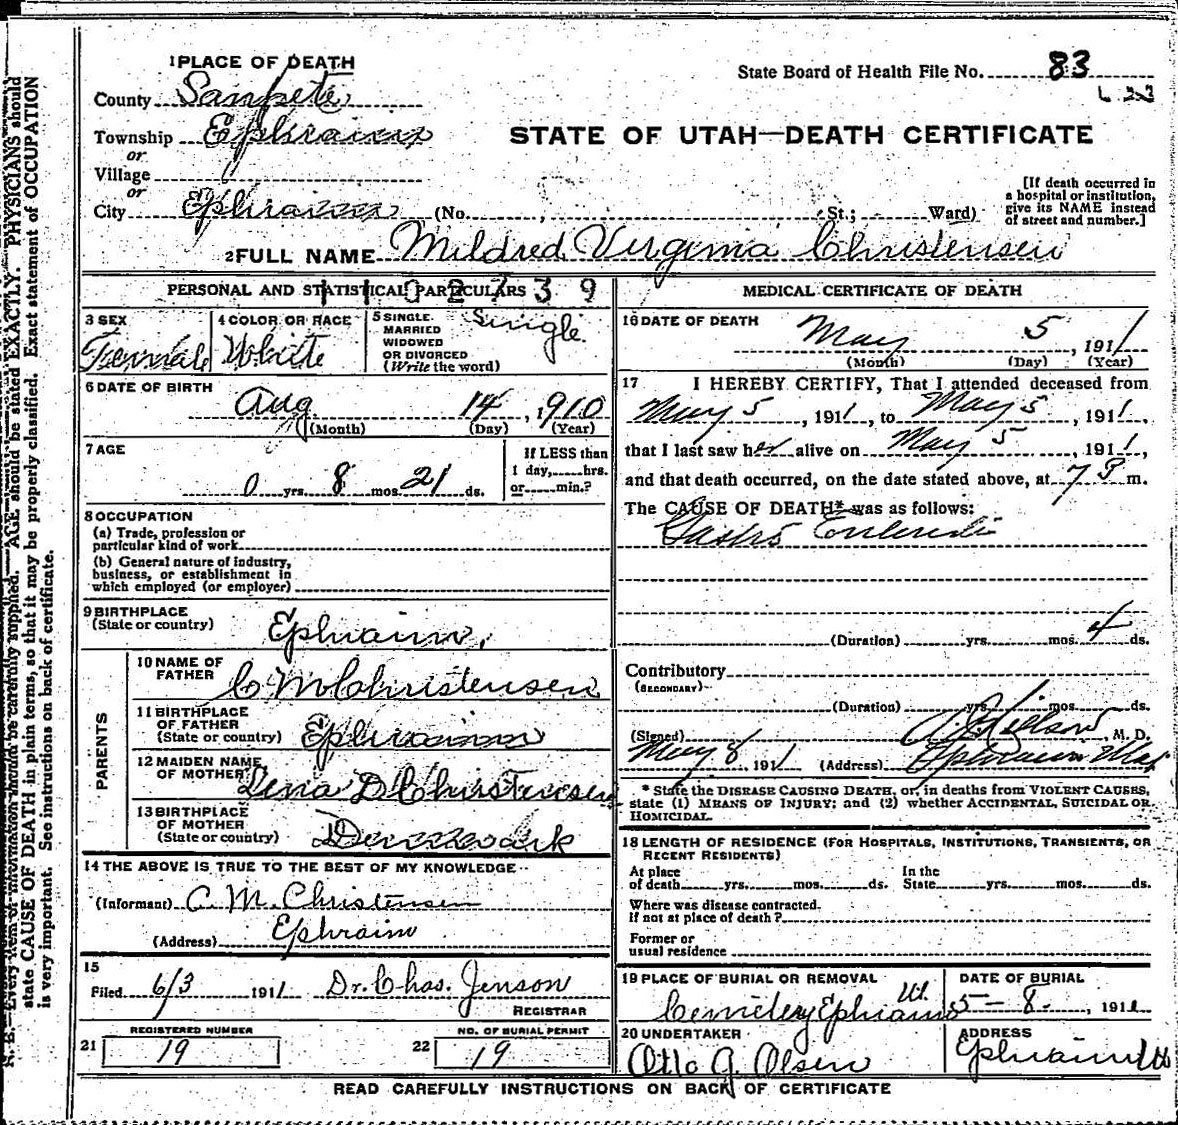 N. B.—Every item of information should be carefully supplied. AGE should be stated EXACTLY. PHYSICIANS should
state CAUSE OF DEATH in plain terms, so that it may be properly classified. Exact statement of OCCUPATION
is very important. See instructions on back of certificate.
1 PLACE OF DEATH
State Board of Health File No. 83
County Sanpete
Township Ephraim
or
STATE OF UTAH—DEATH CERTIFICATE
Village
or
City Ephraim (No. , St.; Ward)
[If death occurred in
a hospital or institution,
give its NAME instead
of street and number.]
2 FULL NAME Mildred Virginia Christensen
1102739
PERSONAL AND STATISTICAL PARTICULARS
3 SEX
Female
4 COLOR OR RACE
White
5 SINGLE
MARRIED
WIDOWED
OR DIVORCED
(Write the word)
Single
6 DATE OF BIRTH
Aug 14, 1910
(Month) (Day) (Year)
7 AGE
0 yrs. 8 mos. 21 ds.
If LESS than
1 day, hrs.
or min.?
8 OCCUPATION
(a) Trade, profession or
particular kind of work
(b) General nature of industry,
business, or establishment in
which employed (or employer)
9 BIRTHPLACE
(State or country)
Ephraim,
PARENTS
10 NAME OF
FATHER
C M Christensen
11 BIRTHPLACE
OF FATHER
(State or country)
Ephraim
12 MAIDEN NAME
OF MOTHER
Lena D Christensen
13 BIRTHPLACE
OF MOTHER
(State or country)
Denmark
14 THE ABOVE IS TRUE TO THE BEST OF MY KNOWLEDGE
(Informant) C. M. Christensen
(Address) Ephraim
15
Filed 6/3 1911 Dr. Chas. Jenson
REGISTRAR
REGISTERED NUMBER
21 19
NO. OF BURIAL PERMIT
22 19
MEDICAL CERTIFICATE OF DEATH
16 DATE OF DEATH
May 5, 1911
(Month) (Day) (Year)
17 I HEREBY CERTIFY, That I attended deceased from
May 5, 1911, to May 5, 1911,
that I last saw her alive on May 5, 1911,
and that death occurred, on the date stated above, at 7 m.
The CAUSE OF DEATH* was as follows:
Gastro
(Duration) yrs. mos. 4 ds.
Contributory
(SECONDARY)
(Duration) yrs. mos. ds.
(Signed) M. D.
May 8, 1911 (Address) Ephraim
* State the DISEASE CAUSING DEATH, or, in deaths from VIOLENT CAUSES,
state (1) MEANS OF INJURY; and (2) whether ACCIDENTAL, SUICIDAL OR
HOMICIDAL.
18 LENGTH OF RESIDENCE (FOR HOSPITALS, INSTITUTIONS, TRANSIENTS, OR
RECENT RESIDENTS)
At place
of death yrs. mos. ds.
In the
State yrs. mos. ds.
Where was disease contracted.
If not at place of death?
Former or
usual residence
19 PLACE OF BURIAL OR REMOVAL
Cemetery Ephraim Ut.
DATE OF BURIAL
5-8-, 1911
20 UNDERTAKER
Otto G. Olsen
ADDRESS
Ephraim Ut
READ CAREFULLY INSTRUCTIONS ON BACK OF CERTIFICATE